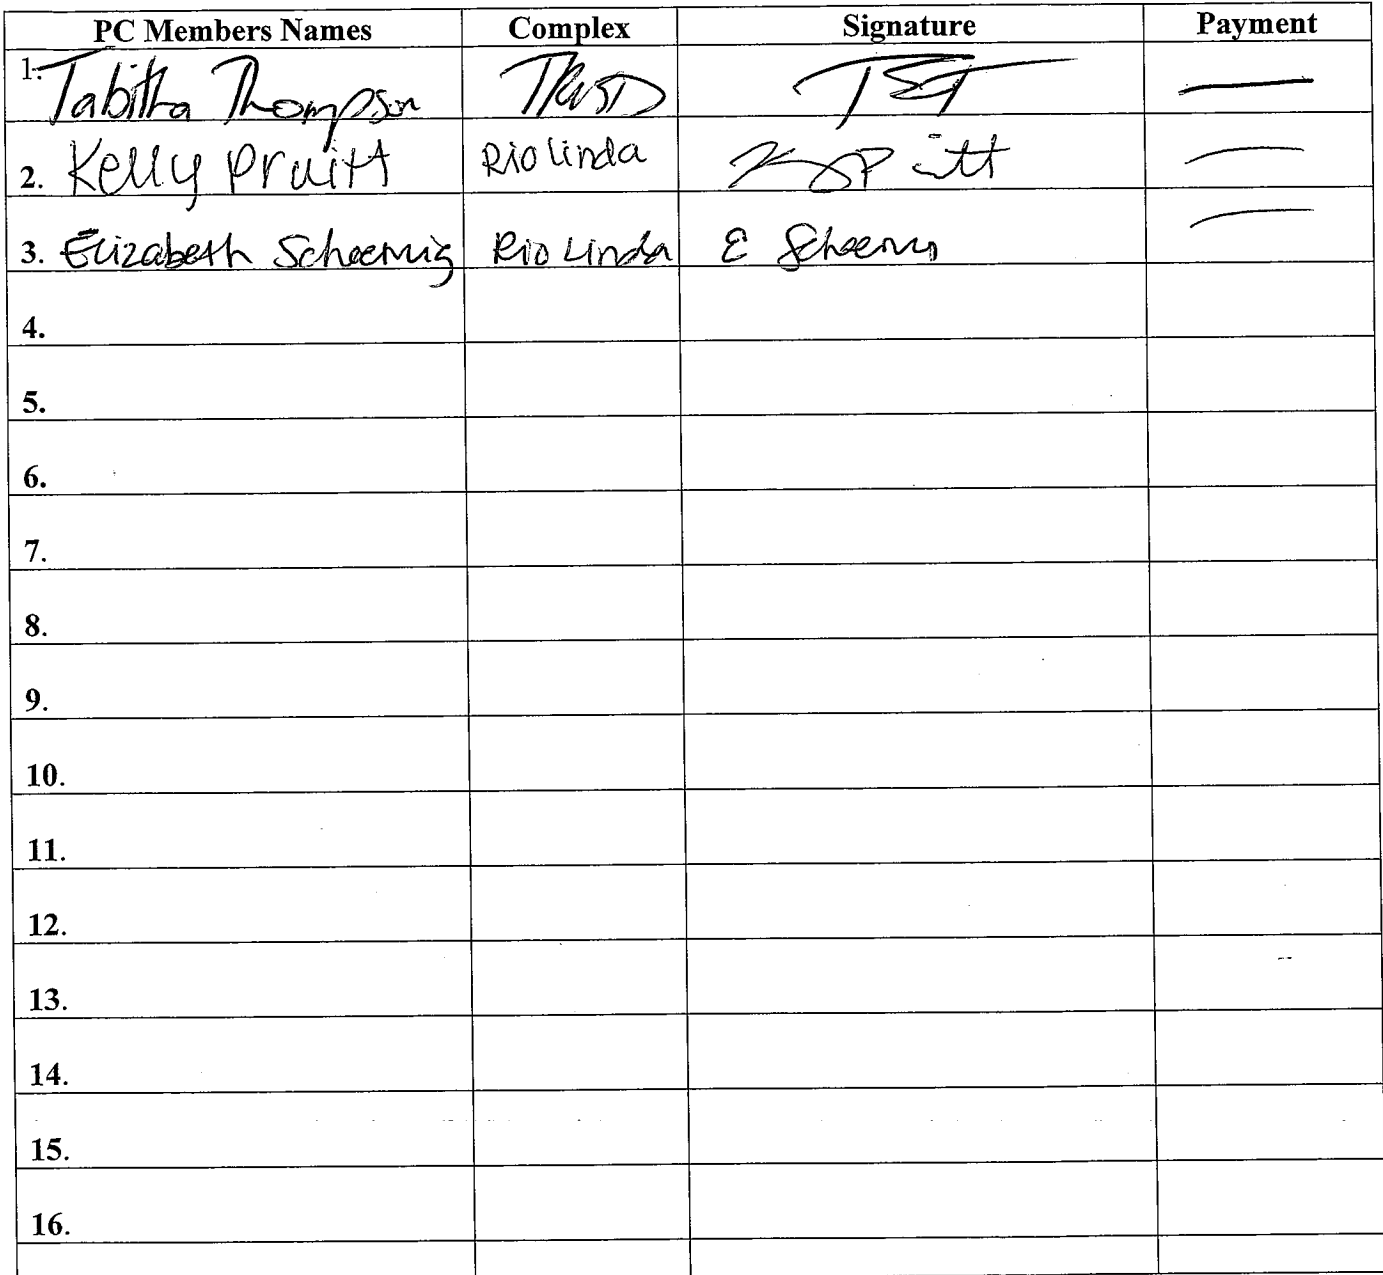 PC Members Names Complex Signature Payment
1. Tabitha Thompson TRUSD TST —
2. Kelly Pruitt Rio Linda —
3. Elizabeth Rio Linda E —
4.
5.
6.
7.
8.
9.
10.
11.
12.
13.
14.
15.
16.